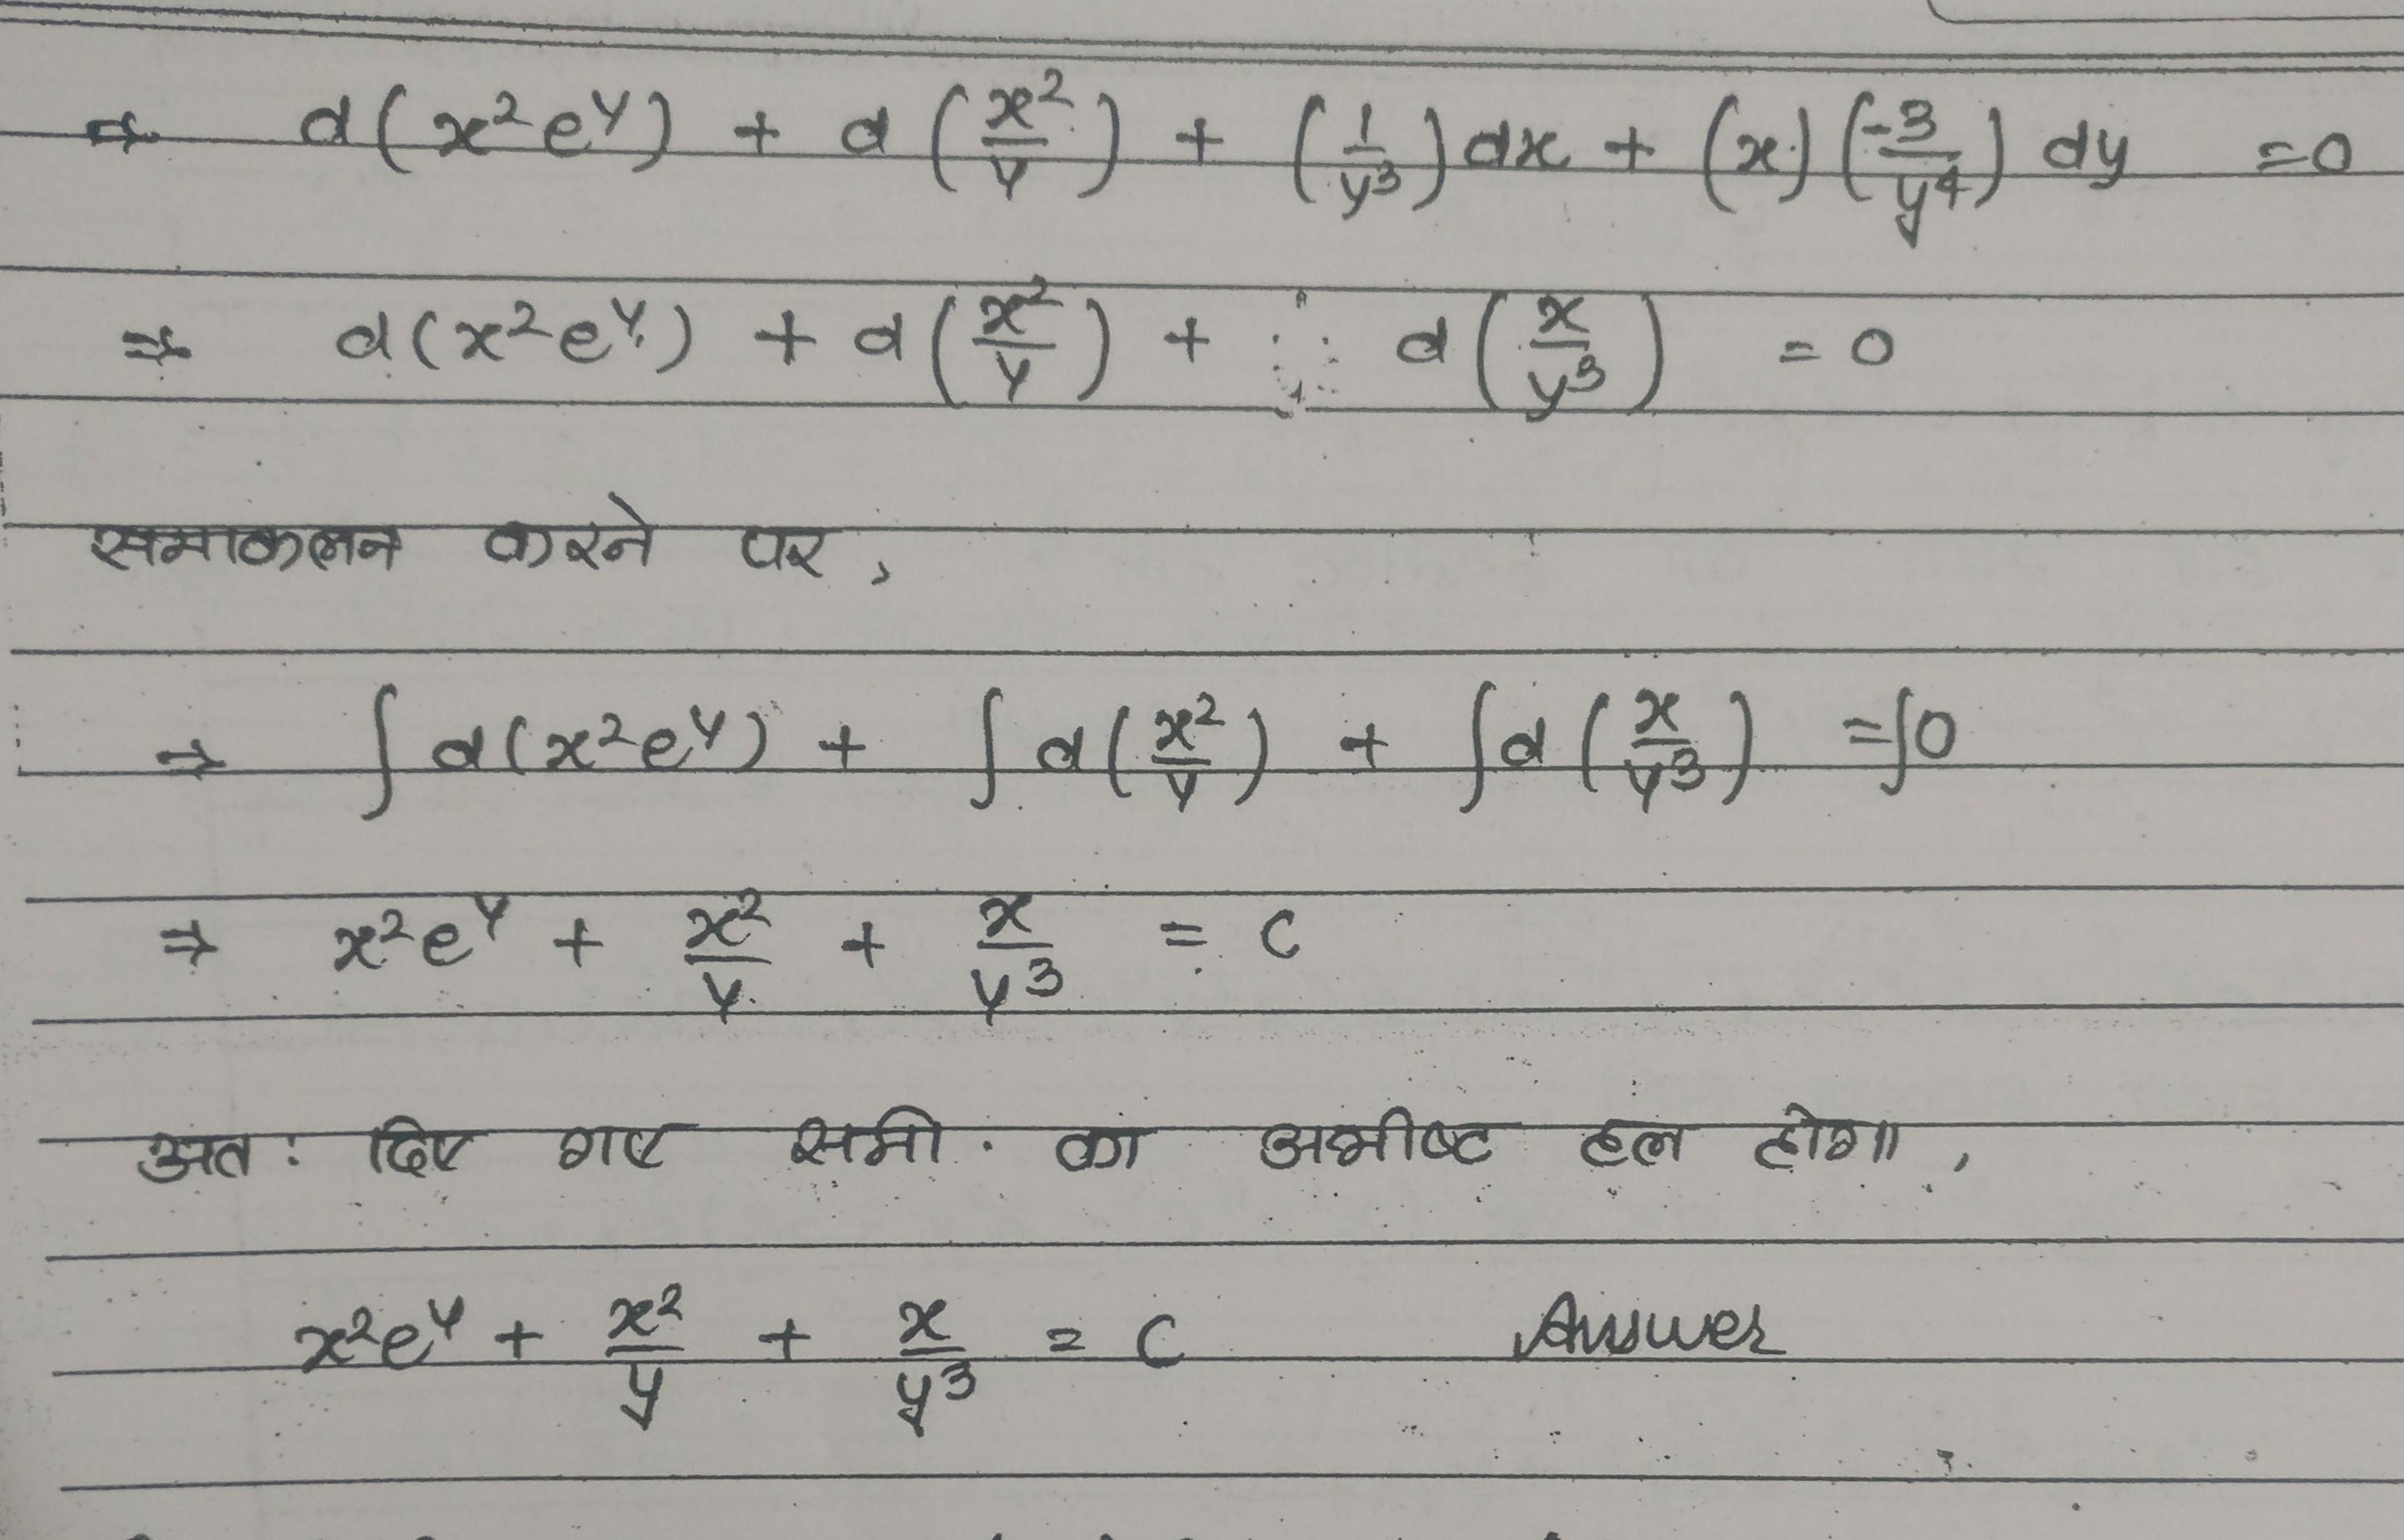 ⇒ d(x²e^y) + d(x²/y) + (1/y³)dx + (x)(-3/y⁴)dy = 0
⇒ d(x²e^y) + d(x²/y) + d(x/y³) = 0
समाकलन करने पर,
⇒ ∫d(x²e^y) + ∫d(x²/y) + ∫d(x/y³) = ∫0
⇒ x²e^y + x²/y + x/y³ = c
अत: दिए गए समी. का अभीष्ट हल होगा,
x²e^y + x²/y + x/y³ = C Answer